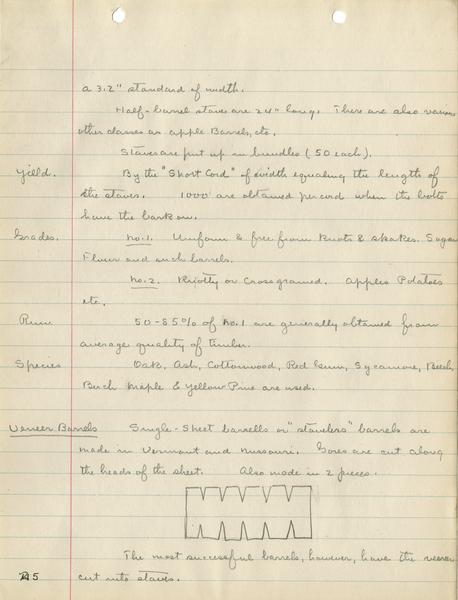 a 3.2" standard of width.
Half-barrel staves are 24" long. There are also various
other classes as apple Barrels, etc.
Staves are put up in bundles (50 each).
Yield. By the "Short Cord" of width equaling the lengths of
the staves. 1000 are obtained per cord when the bolts
have the bark on.
Grades. No.1. Uniform & free from Knots & shakes. Sugar
Flour and such barrels.
No.2. Knotty or Crossgrained. Apples Potatoes
etc.
50-85% of No.1 are generally obtained from
average quality of timber.
Species Oak, Ash, Cottonwood, Red Gum, Sycamore, Beech,
Birch Maple & Yellow Pine are used.
Veneer Barrels Single-Sheet barrells or "staveless" barrels are
made in Vermont and Missouri. Gores are cut along
the heads of the sheet. Also made in 2 pieces.
The most successful barrels, however, have the veneer
cut into staves.